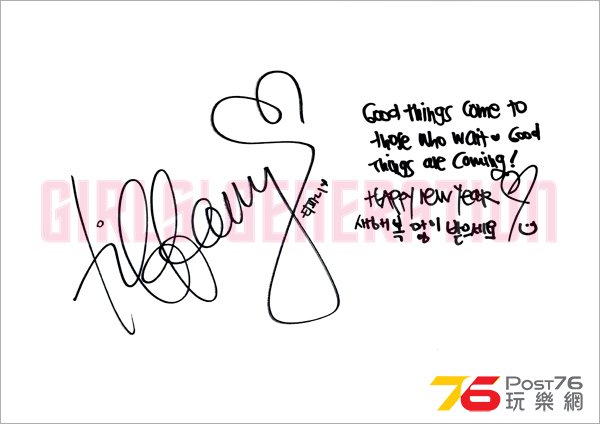 Tiffany
티파니♥
Good things come to
those who wait ♥ Good
things are coming!
HAPPY NEW YEAR
새해 복 많이 받으세요
GIRLS' GENERATION
76 Post76
玩樂網